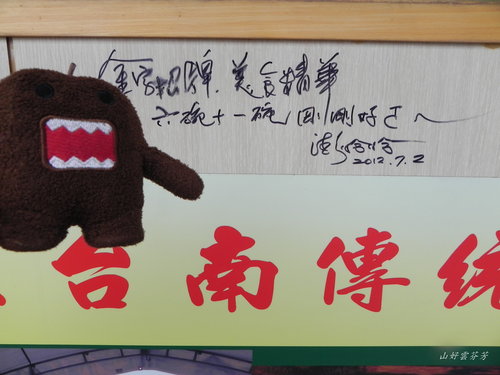 金字招牌.美食精華
六碗十一碗 剛剛好ㄛ~
澎恰恰
2012.7.2
台南傳統
山好雲芬芳